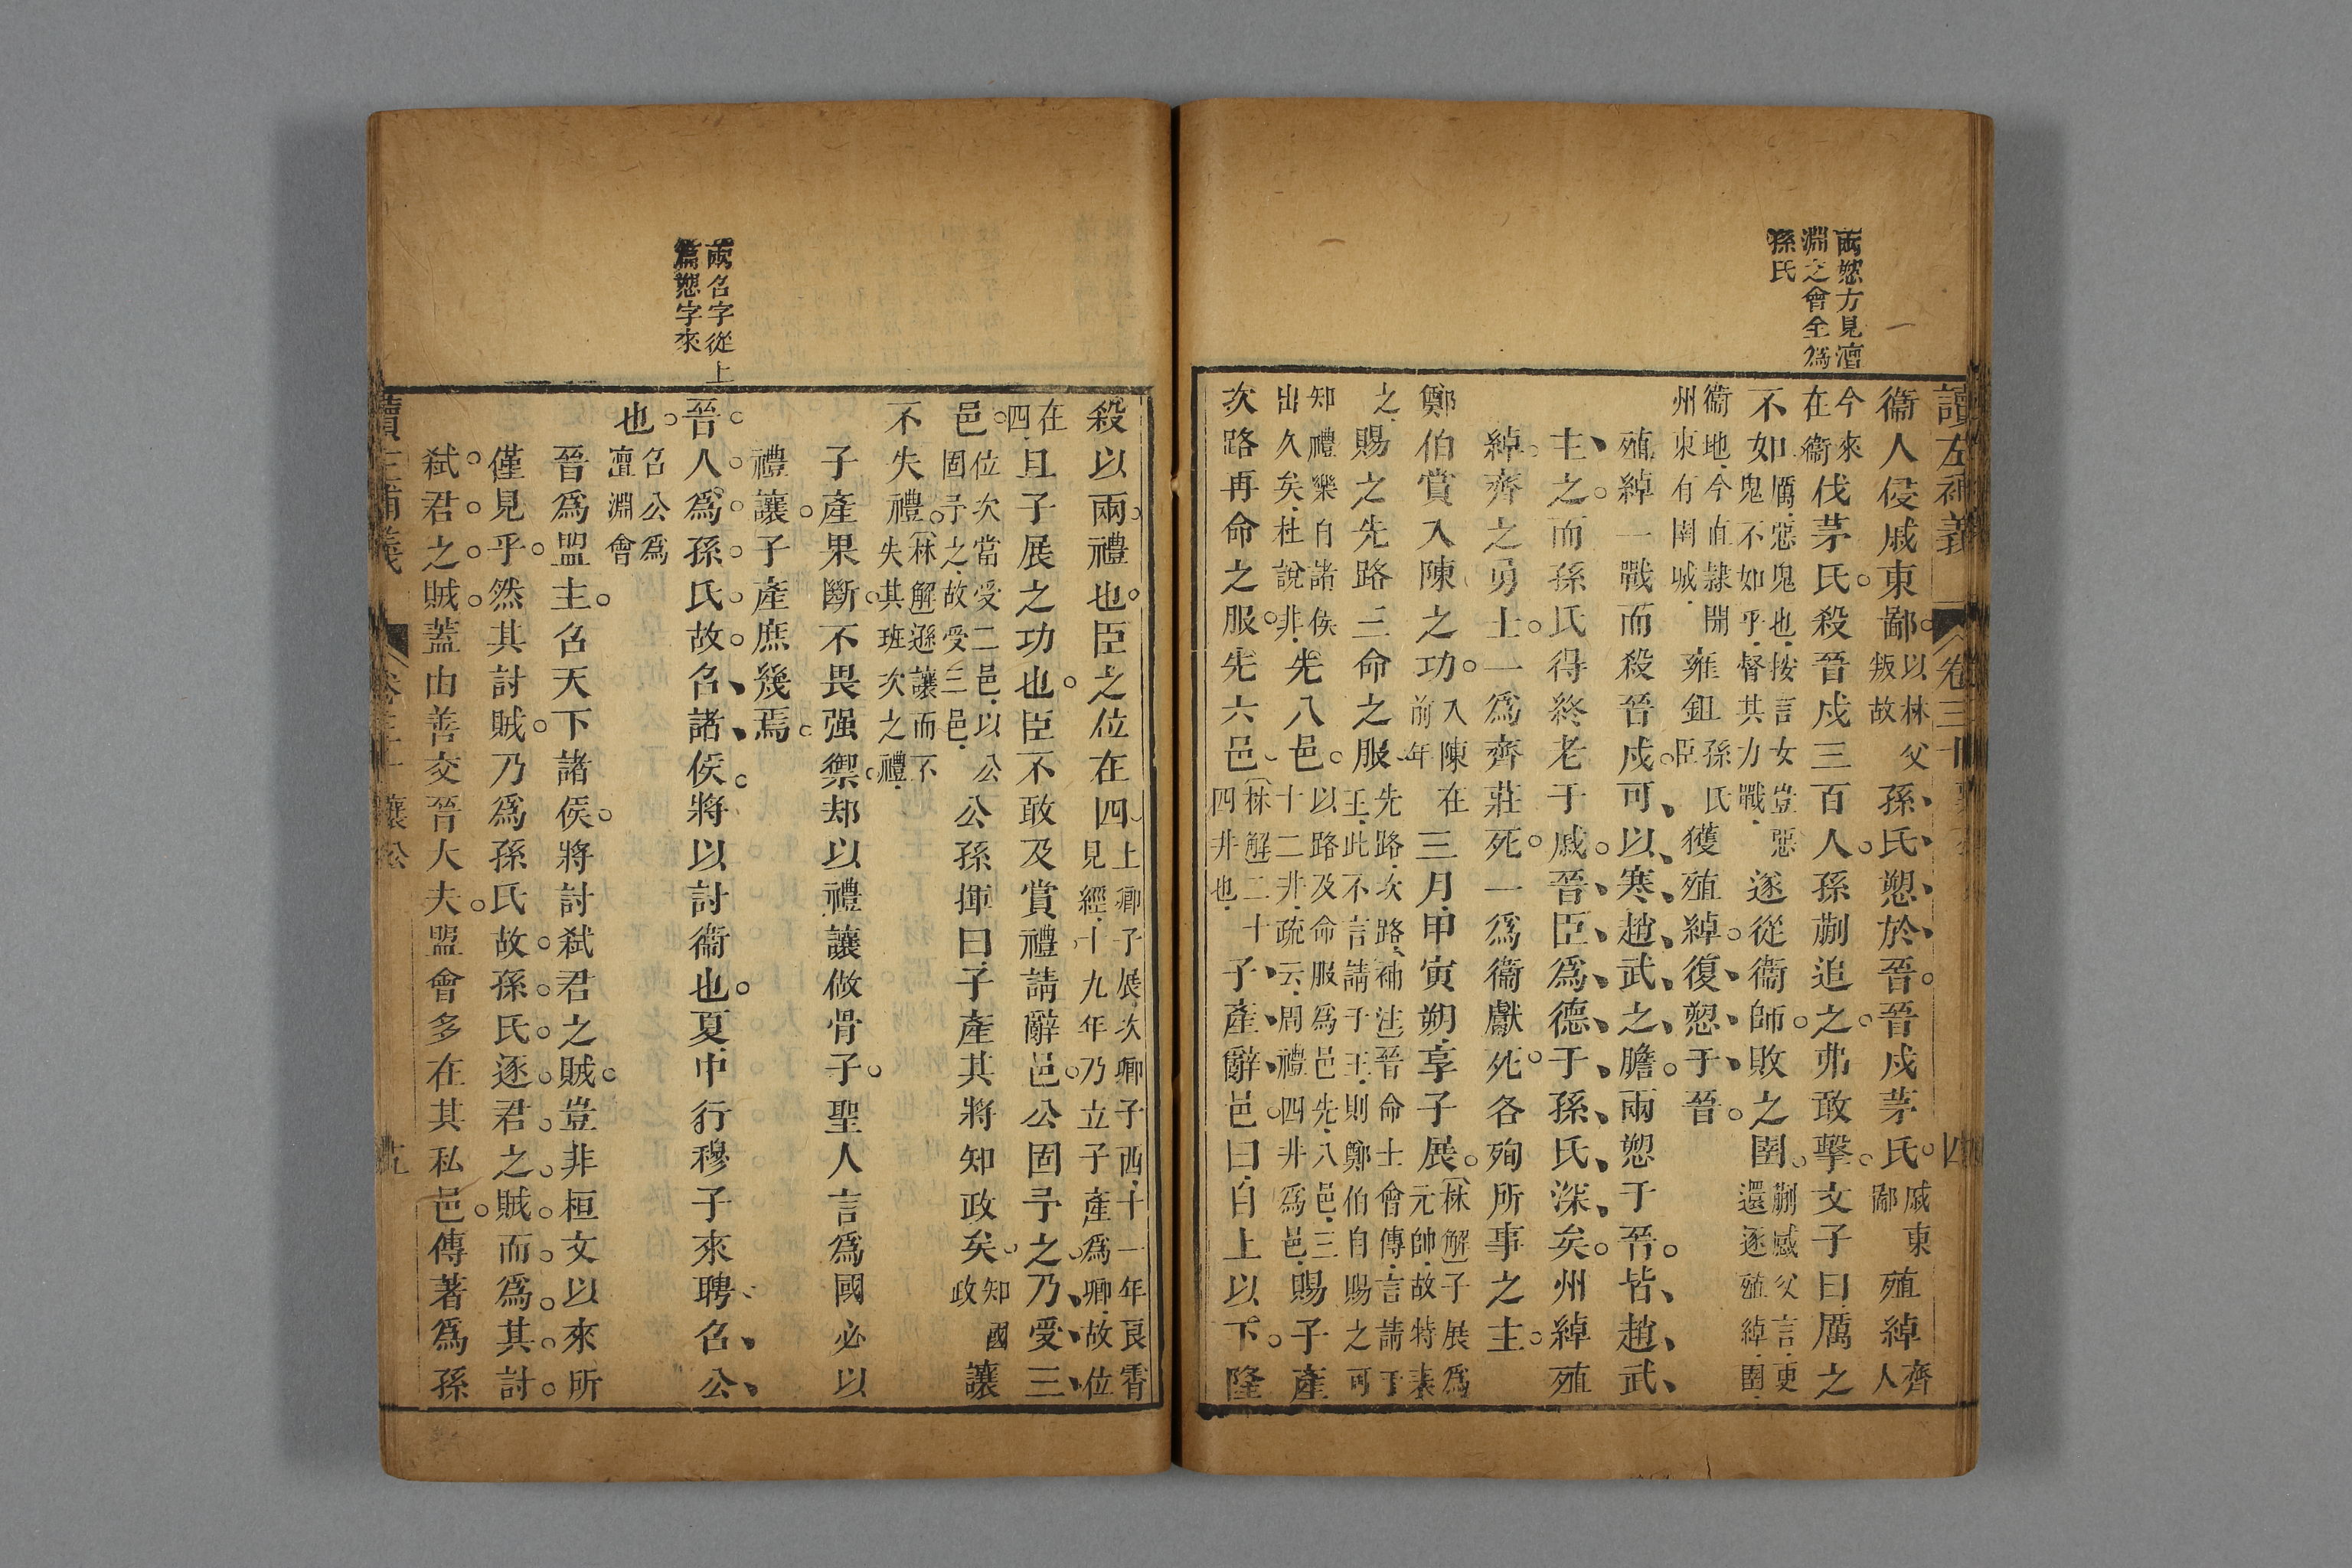 兩愬方見澶
淵之會全爲
孫氏
讀左補義 卷三十 襄公 四
衞人侵戚東鄙以林父叛故孫氏愬於晉晉戍茅氏戚東鄙殖綽齊人
今來在衞伐茅氏殺晉戍三百人孫蒯追之弗敢擊文子曰厲之
不如厲惡鬼也按言女豈惡鬼不如乎督其力戰遂從衞師敗之圉蒯感父言更還逐殖綽圉
衞地今直隷開州東有圉城雍鉏孫氏臣獲殖綽復愬于晉
殖綽一戰而殺晉戍可以寒趙武之膽兩愬于晉皆趙武
主之而孫氏得終老于戚晉臣爲德于孫氏深矣州綽殖
綽齊之勇士一爲齊莊死一爲衞獻死各殉所事之主
鄭伯賞入陳之功入陳在前年三月甲寅朔享子展林解子展爲元帥故特表
之賜之先路三命之服先路次路補注晉命士會傳言請于王此不言請于王則鄭伯自賜之可
知禮樂自諸侯出久矣杜說非先八邑以路及命服爲邑先八邑三十二井疏云周禮四井爲邑賜子產
次路再命之服先六邑林解二十四井也子產辭邑曰自上以下隆
兩名字從上
篇愬字來
殺以兩禮也臣之位在四上卿子展次卿子西十一年良霄見經十九年乃立子產爲卿故位
在四且子展之功也臣不敢及賞禮請辭邑公固予之乃受三
邑位次當受二邑以公固予之故受三邑公孫揮曰子產其將知政矣知國政讓
不失禮林解遜讓而不失其班次之禮
子產果斷不畏强禦却以禮讓做骨子聖人言爲國必以
禮讓子產庶幾焉
晉人爲孫氏故召諸侯將以討衞也夏中行穆子來聘召公
也召公爲澶淵會
晉爲盟主召天下諸侯將討弑君之賊豈非桓文以來所
僅見乎然其討賊乃爲孫氏故孫氏逐君之賊而爲其討
弑君之賊蓋由善交晉大夫盟會多在其私邑傳著爲孫